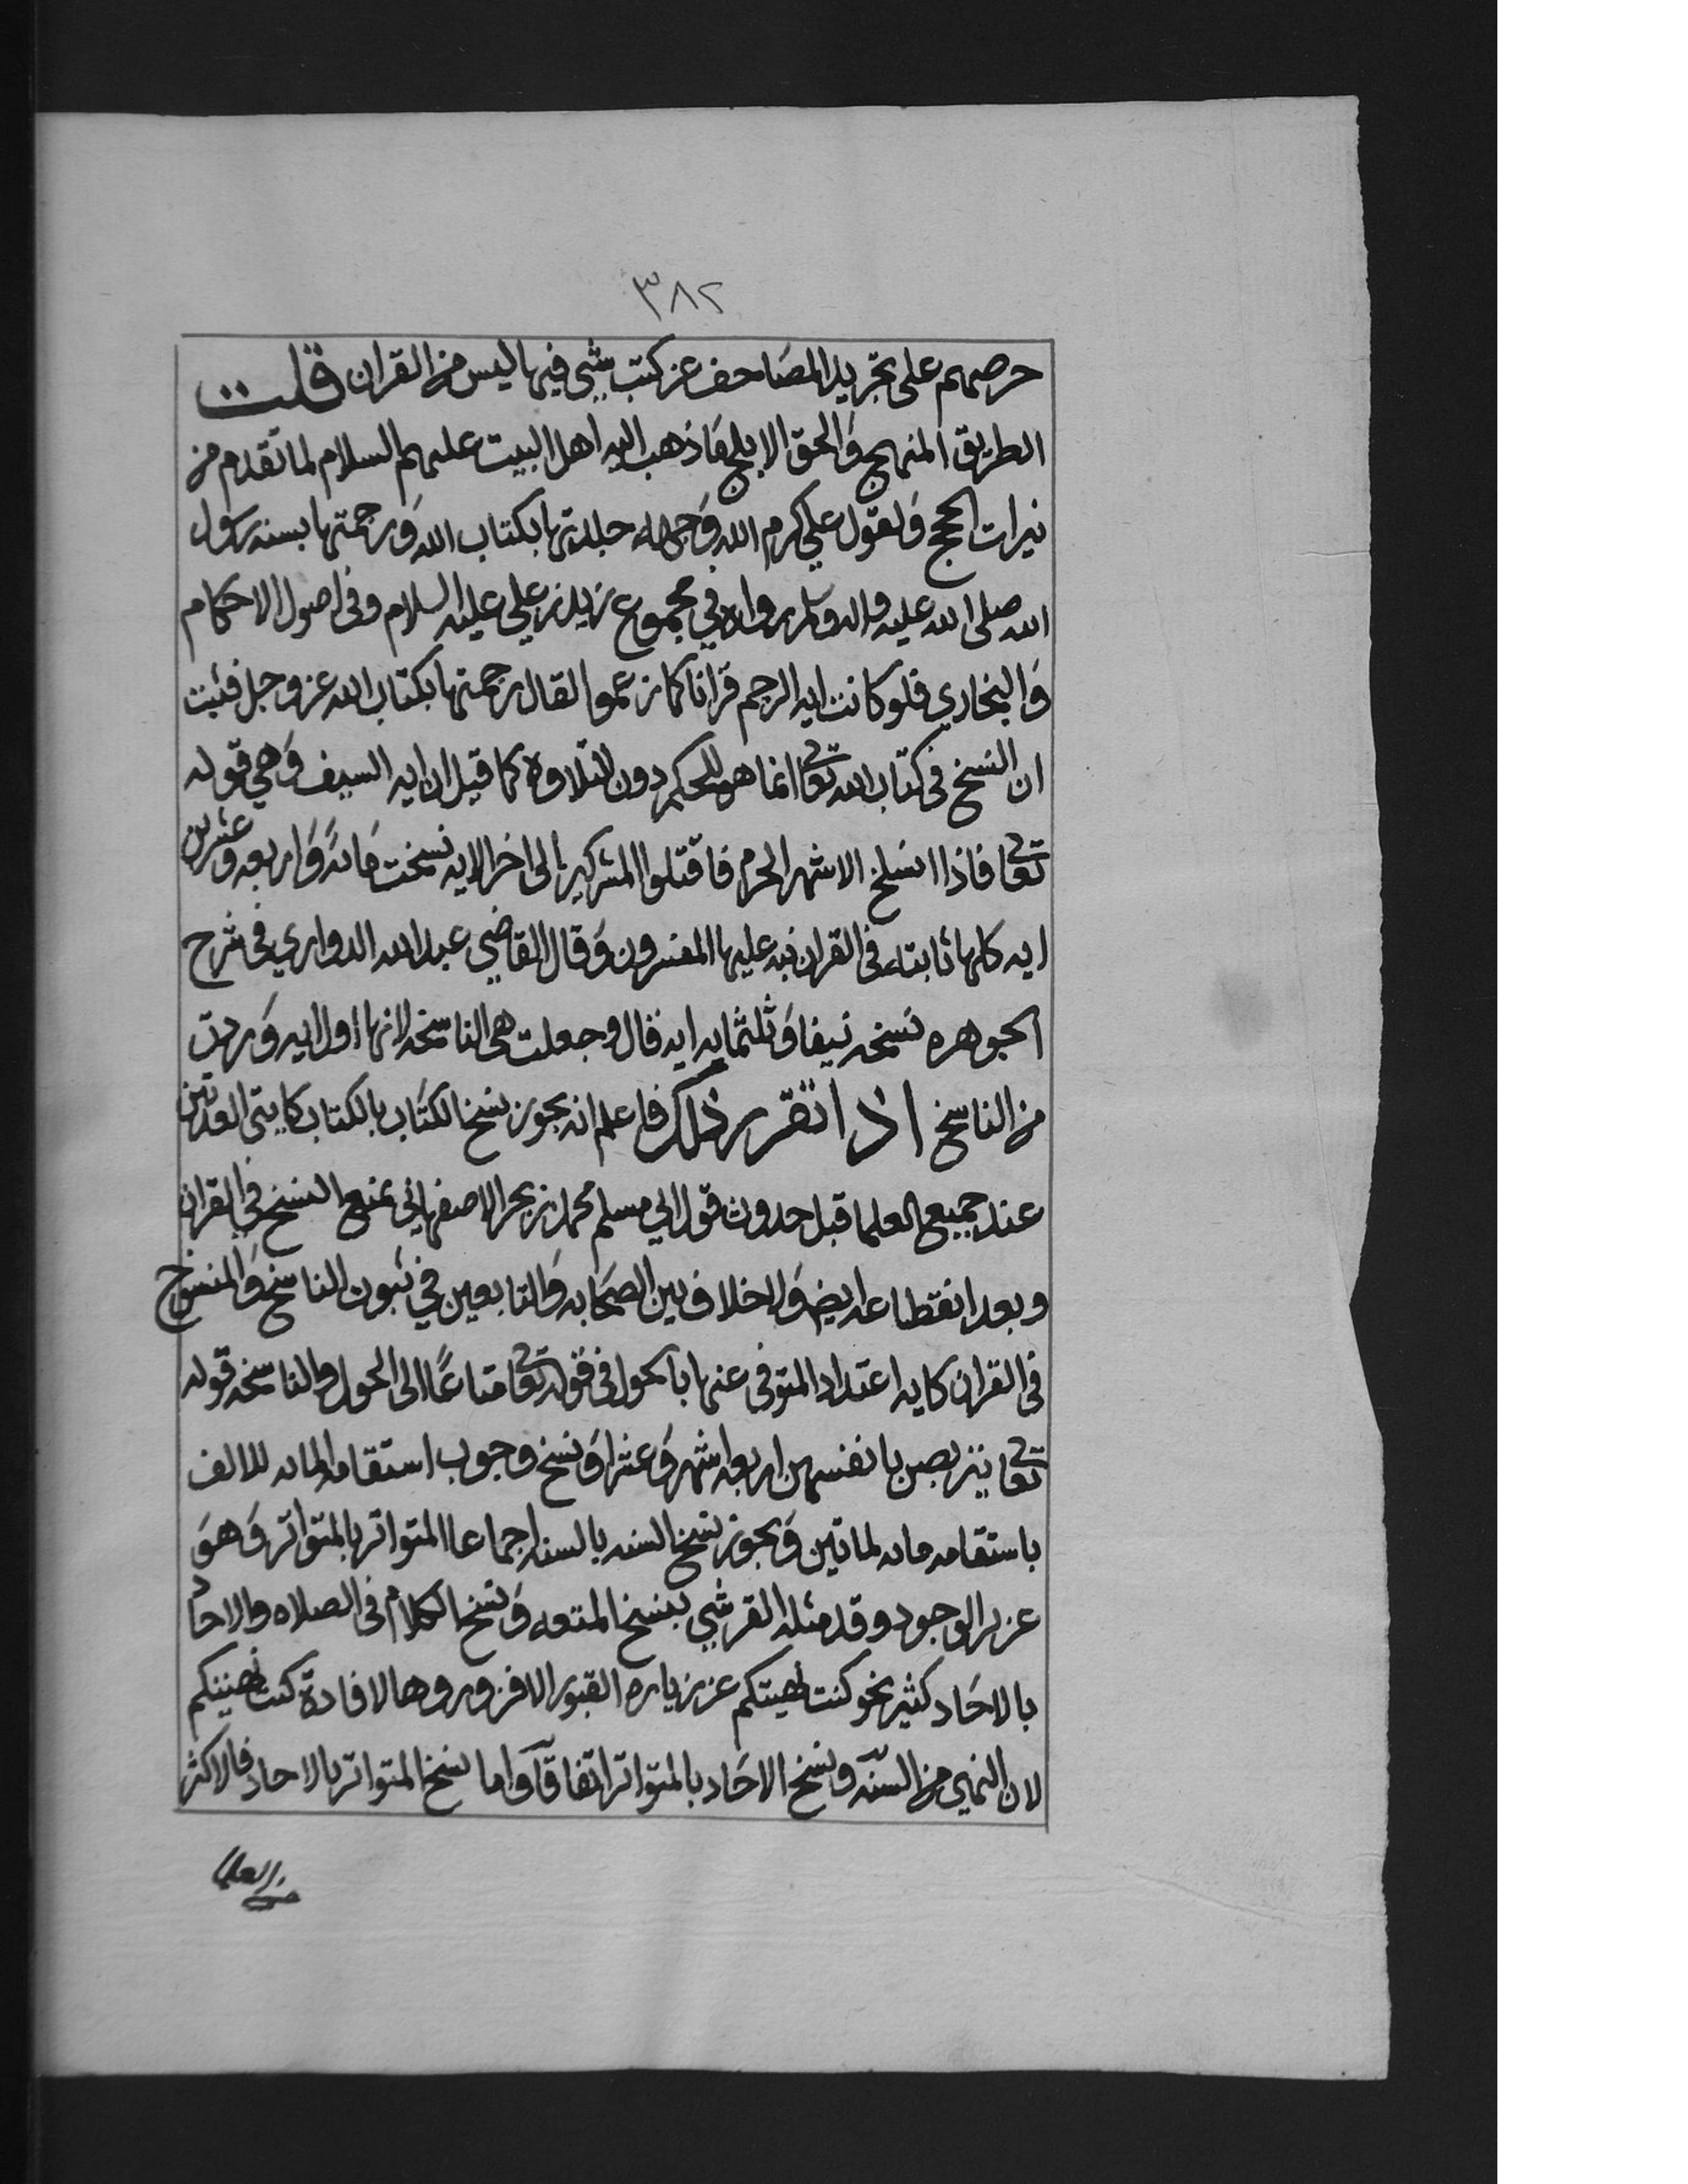 ٣٨٢
حرصهم على تجريد المصاحف عن كتب شي فيها ليس من القران قلت
الطريق المنهج والحق الابلج ما ذهب اليه اهل البيت عليهم السلام لما تقدم من
نيرات الحجج ولقول علي كرم الله وجهه جلدتها بكتاب الله ورجمتها بسنه رسول
الله صلى الله عليه واله وسلم رواه في مجموع زيد بن علي عليه السلام وفي اصول الاحكام
والبخاري فلو كانت ايه الرجم قرانا كما زعموا لقال رجمتها بكتاب الله عز وجل فثبت
ان النسخ في كتاب الله تعا انما هو للحكم دون التلاوه كما قيل ان ايه السيف وهي قوله
تعا فاذا انسلخ الاشهر الحرم فاقتلوا المشركين الى اخر الايه نسخت مائة واربعه وعشرين
ايه كلها ثابته في القران نبه عليها المفسرون وقال القاضي عبدالله الدواري في شرح
الجوهره نسخه نيفا وثلثمايه ايه قال وجعلت هي الناسخه لانها اول ايه وردت
من الناسخ اذا تقرر ذلك فاعلم انه يجوز نسخ الكتاب بالكتاب كايتي العدتين
عند جميع العلما قبل حدوث قول ابي مسلم محمد بن بحر الاصفهاني بمنع النسخ في القران
وبعد انقطاعه ايضا ولا خلاف بين الصحابه والتابعين في ثبوت الناسخ والمنسوخ
في القران كايه اعتداد المتوفى عنها بالحول في قوله تعا متاعًا الى الحول والناسخه قوله
تعا يتربصن بانفسهن اربعه اشهر وعشرا ونسخ وجوب استقامه المايه للالف
باستقامه مايه لماتين ويجوز نسخ السنه بالسنه اجماعا المتواتر بالمتواتر وهو
عزيز الوجود وقد مثله القرشي بنسخ المتعه ونسخ الكلام في الصلاه والاحاد
بالاحاد كثير نحو كنت نهيتكم عن زياره القبور الا فزوروها لافادة كنت نهيتكم
لان النهي من السنّه ونسخ الاحاد بالمتواتر اتفاقًا واما نسخ المتواتر بالاحاد فالاكثر
من العلما